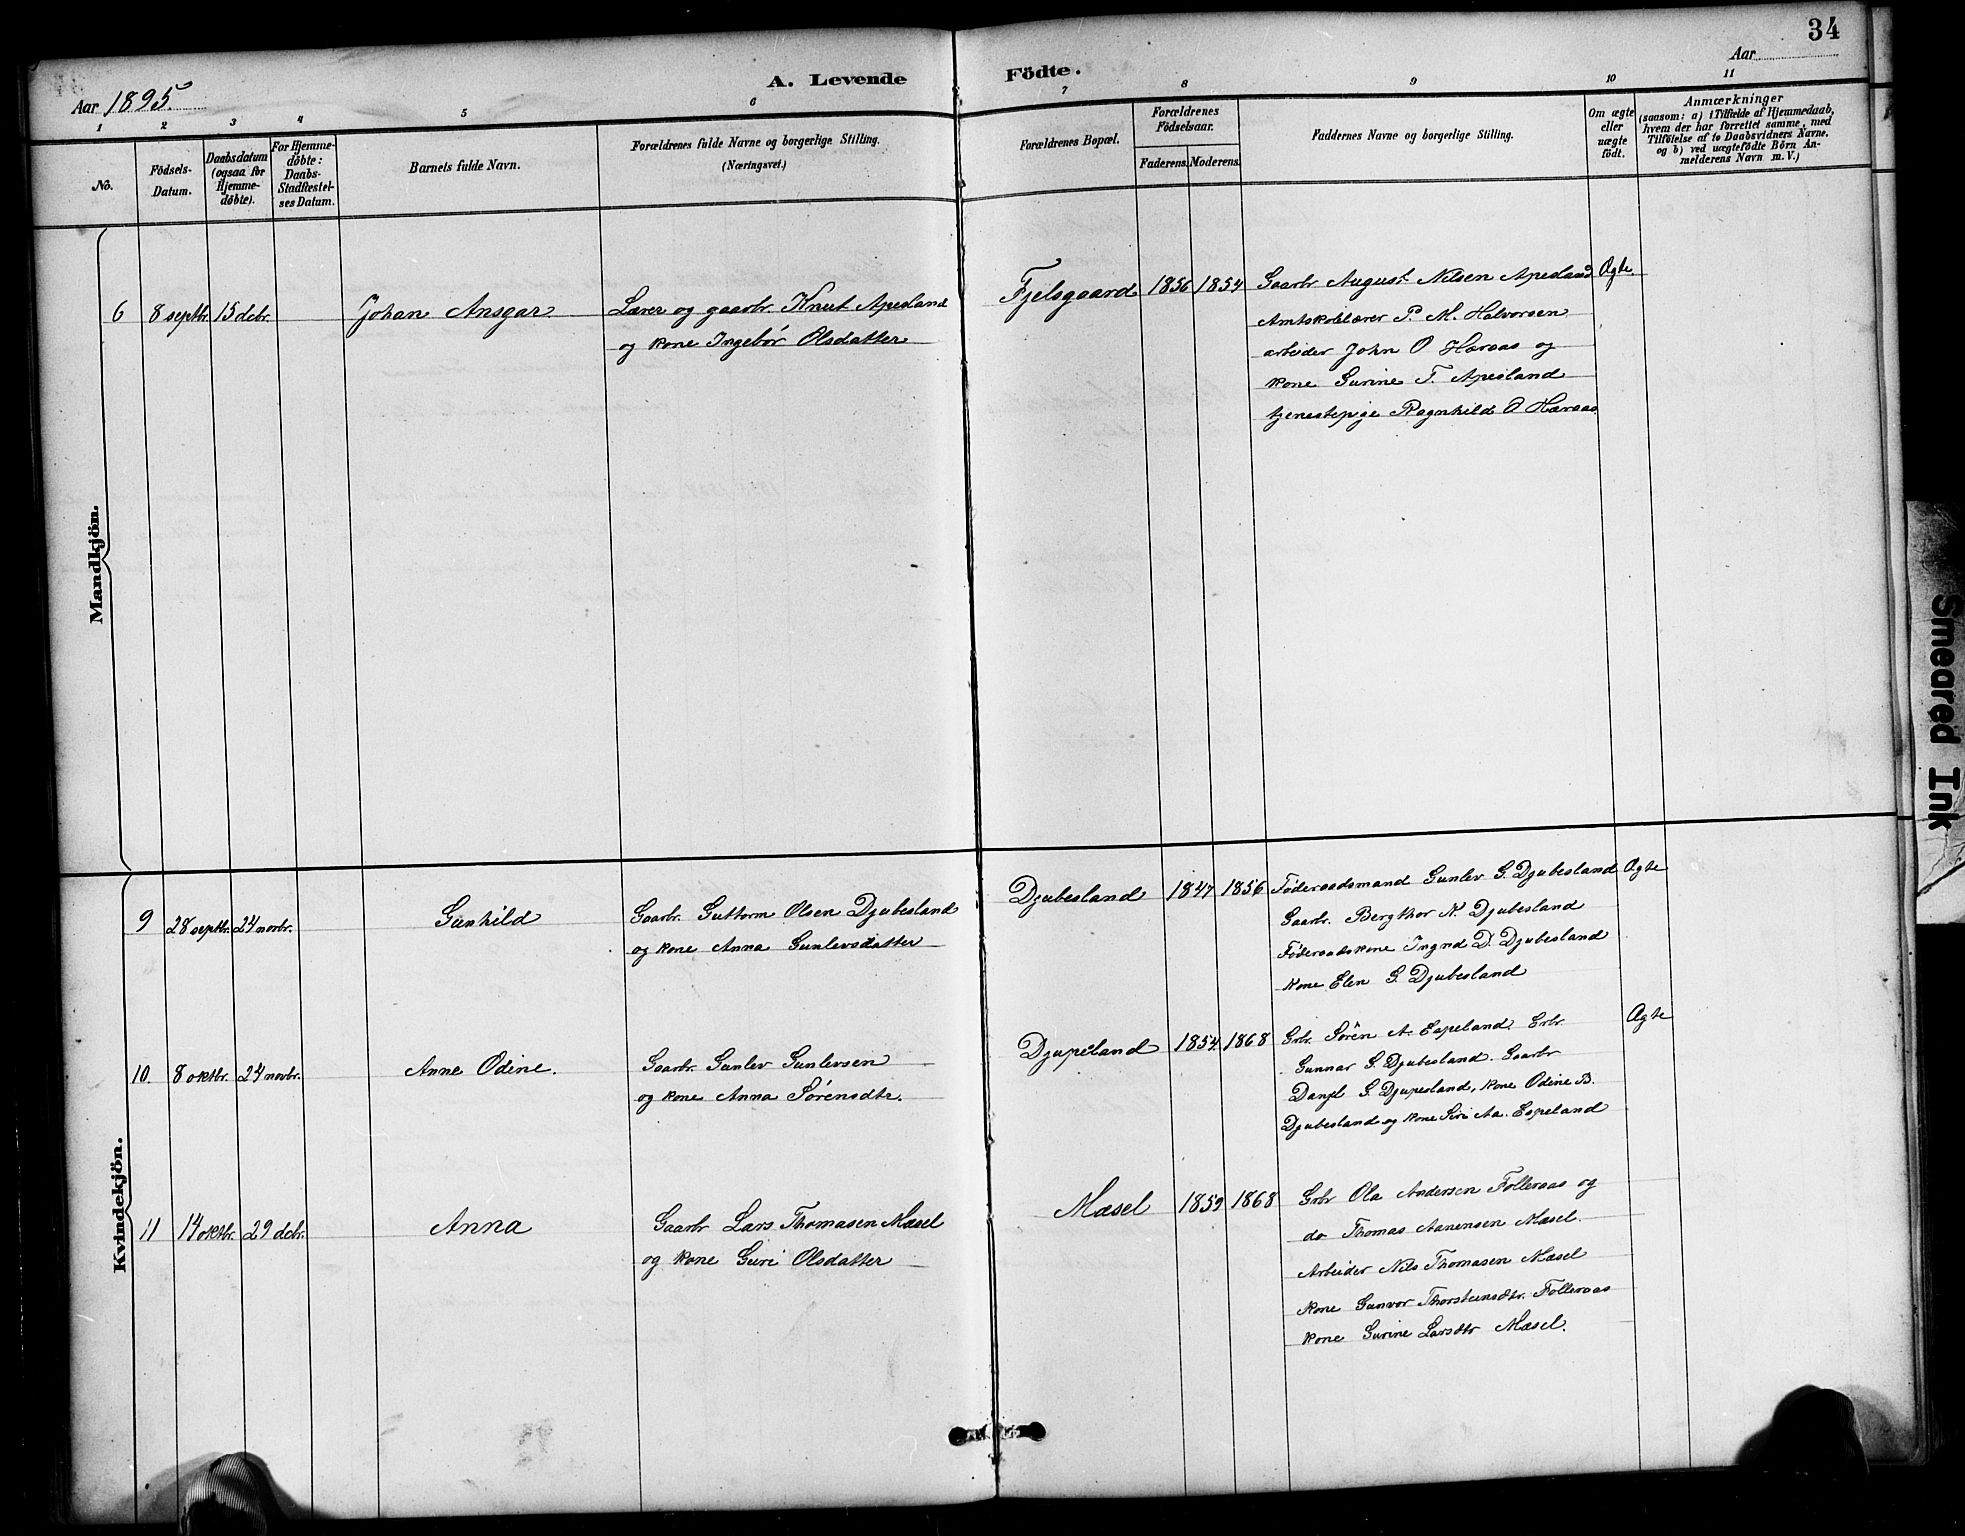 34
A. Levende Födte.
Aar 1895.
Aar
1 2 3 4 5 6 7 8 9 10 11
No.
Födsels-
Datum.
Daabsdatum
(ogsaa for
Hjemme-
døbte).
For Hjemme-
døbte:
Daabs-
Stadfæstel-
ses Datum.
Barnets fulde Navn.
Forældrenes fulde Navne og borgerlige Stilling.
(Næringsvei.)
Forældrenes Bopæl.
Forældrenes
Födselsaar.
Faderens. Moderens.
Faddernes Navne og borgerlige Stilling.
Om ægte
eller
uægte
födt.
Anmærkninger
(saasom: a) i Tilfælde af Hjemmedaab,
hvem der har forrettet samme, med
Tilföielse af to Daabsvidners Navne.
og b) ved uægtefödte Börn An-
melderens Navn m.V.)
Mandkjön.
6 8 septbr. 15 dcbr. Johan Ansgar
Lærer og gaarbr. Knut Apesland
og kone Ingebør Olsdatter
Fjelsgaard 1856 1854
Gaarbr August Nilsen Apesland
Amtskolelærer P. M. Halvorsen
arbeider John O Haraas og
kone Gurine T. Apesland
tjenestepige Ragnhild O Haraas
Ægte.
Kvindekjön.
9 28 septbr. 24 novbr. Gunhild
Gaarbr. Guttorm Olsen Djubesland
og kone Anna Gunlevsdatter
Djubesland 1847 1856
Føderaadsmand Gunlev G. Djubesland
Gaarbr. Bergthor N. Djubesland
Føderaadskone Ingrid D. Djubesland
kone Elen G. Djubesland
Ægte
10. 8 oktbr. 24 novbr. Anne Odine.
Gaarbr. Gunlev Gunlevsen
og kone Anna Sørensdtr.
Djupeland 1854 1868
Grbr. Søren A. Espeland. Grbr.
Gunnar G. Djubesland. Gaarbr
Danjel G. Djupesland, kone Odine B.
Djubesland og kone Siri Aa. Espeland
Ægte
11 14 oktbr. 29 dcbr. Anna
Gaarbr Lars Thomasen Mæsel
og kone Guri Olsdatter
Mæsel 1859 1868
Grbr Ola Andersen Folleraas og
do Thomas Aanensen Mæsel.
Arbeider Nils Thomasen Mæsel
kone Gunvor Thorsteinsdtr. Folleraas
kone Gurine Larsdtr Mæsel.
Smeared Ink